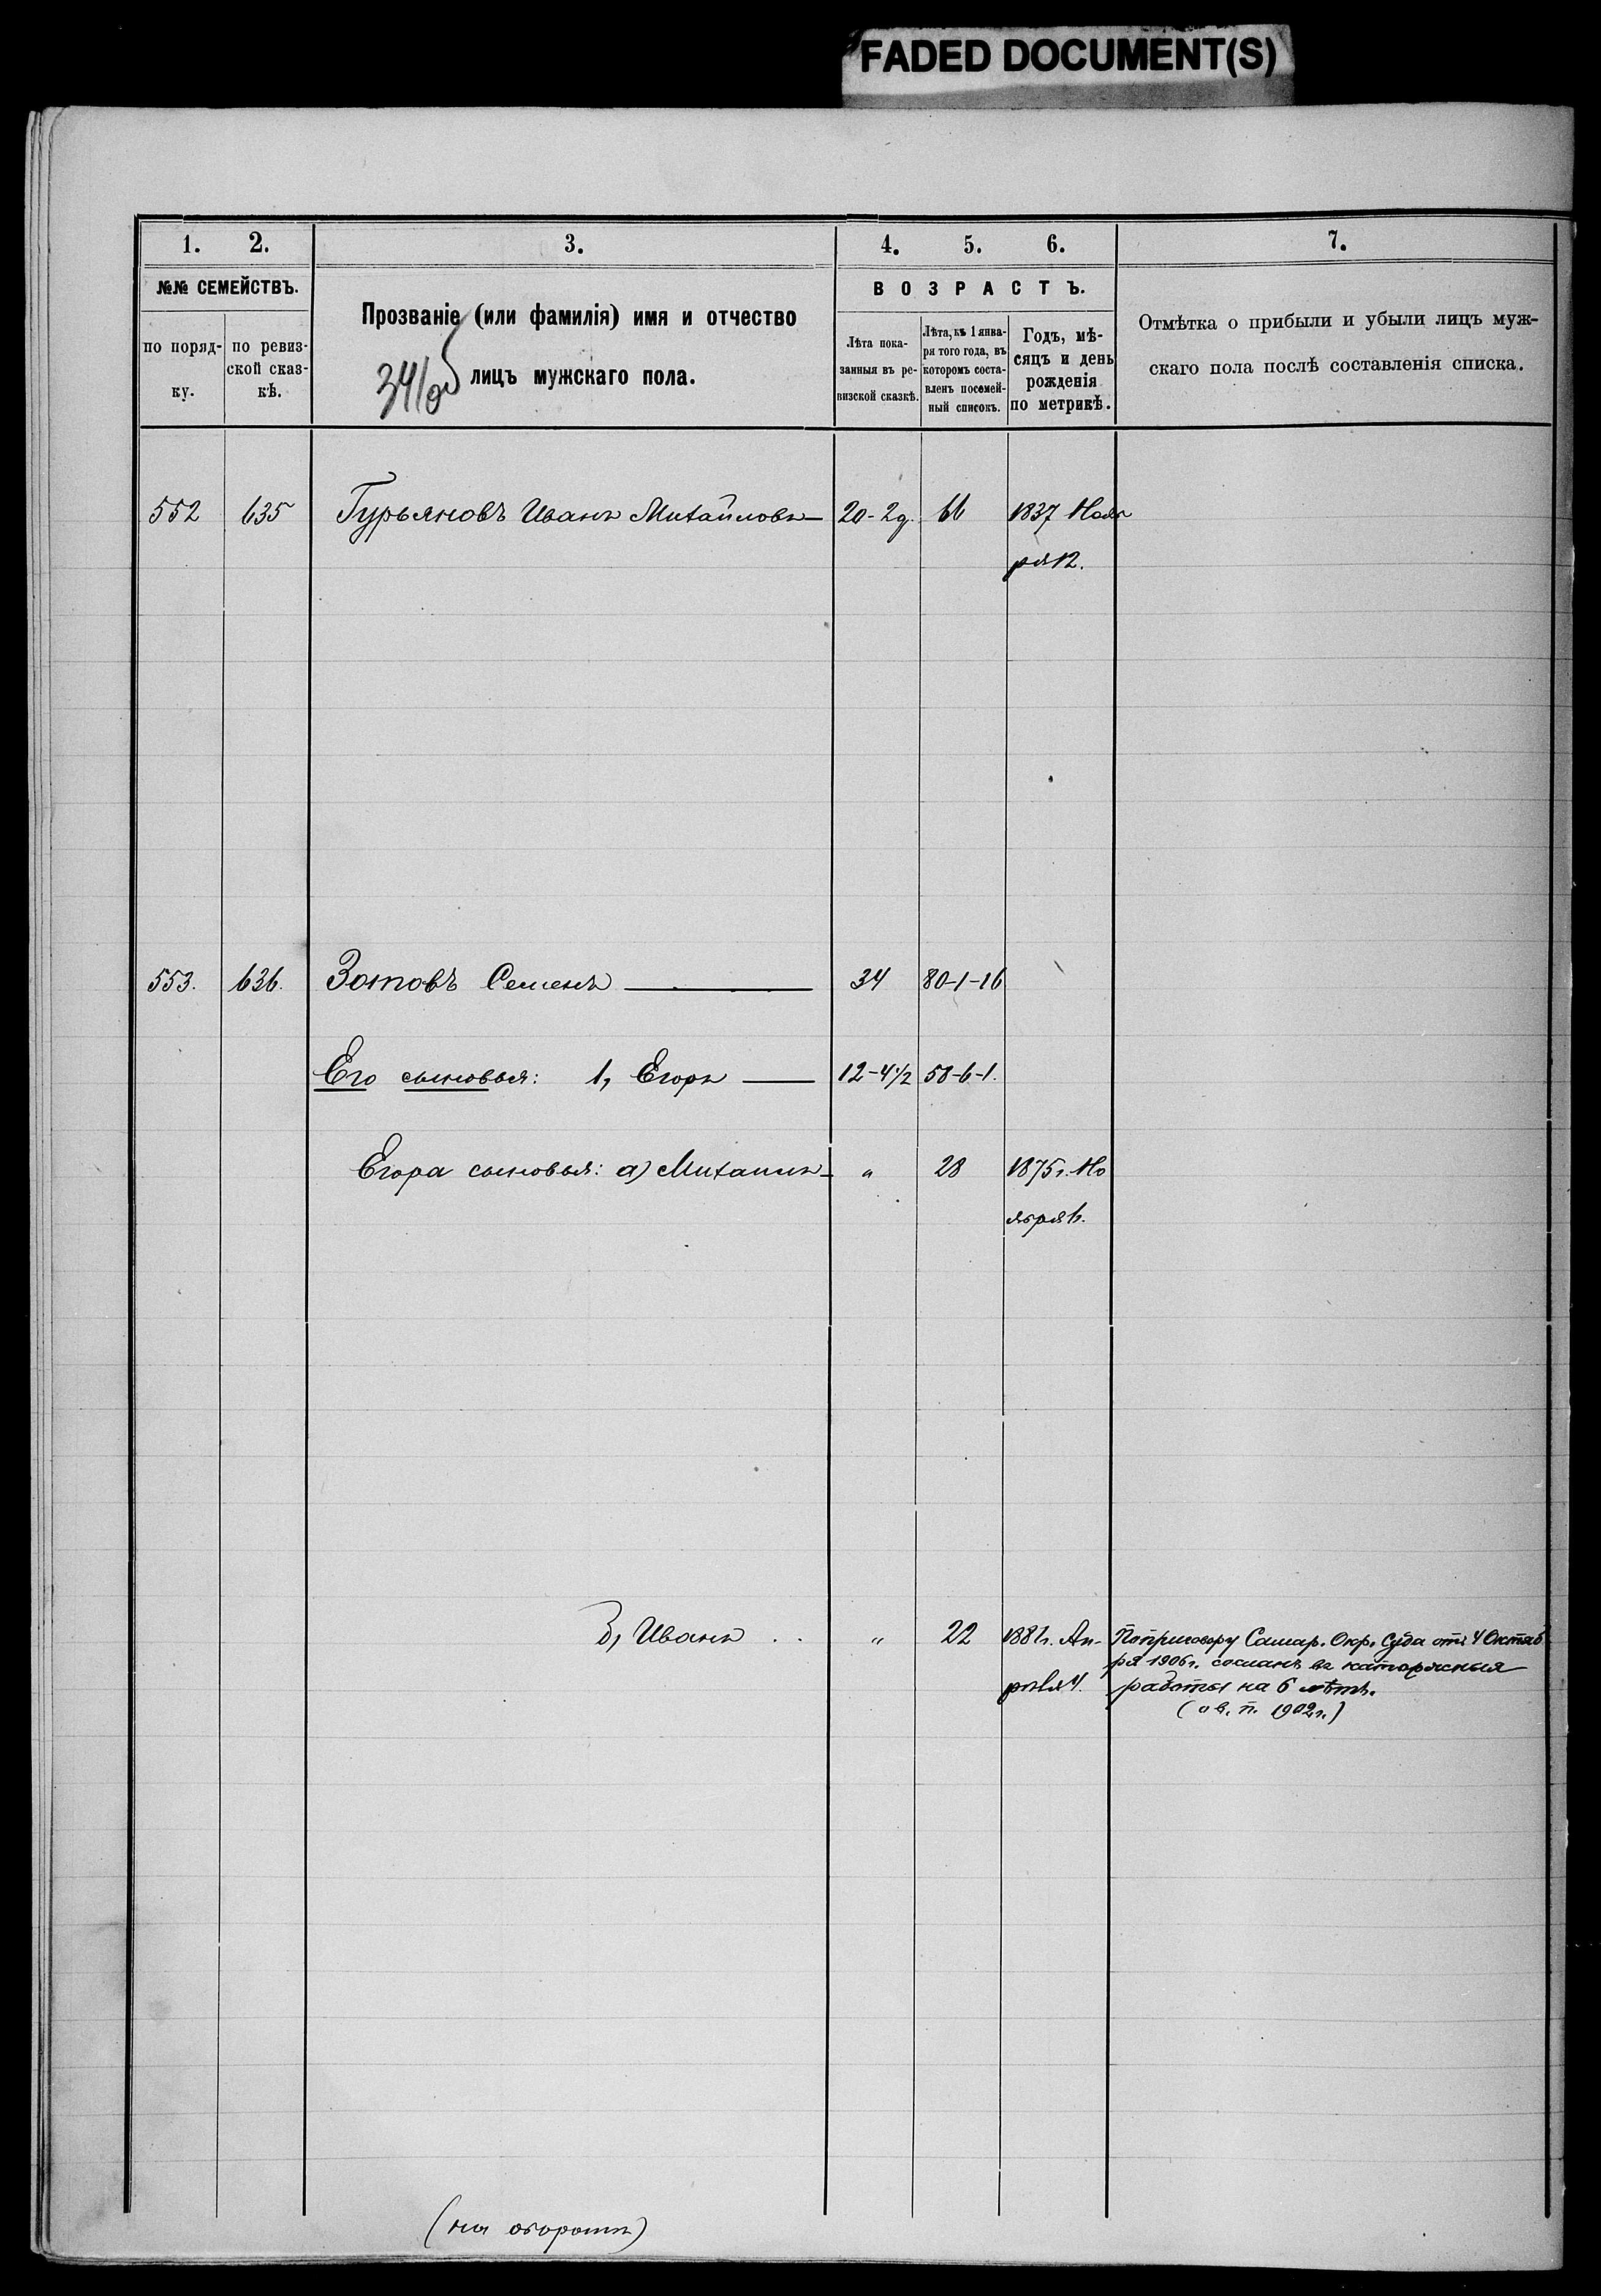 FADED DOCUMENT(S)
1. 2. 3. 4. 5. 6. 7.
№№ СЕМЕЙСТВЪ.
по поряд-
ку.
по ревиз-
ской сказ-
кѣ.
Прозваніе (или фамилія) имя и отчество
лицъ мужскаго пола.
341об
ВОЗРАСТЪ.
Лѣта пока-
занныя въ ре-
визской сказкѣ.
Лѣта, къ 1 янва-
ря того года, въ
которомъ соста-
вленъ посемей-
ный списокъ.
Годъ, мѣ-
сяцъ и день
рожденія
по метрикѣ.
Отмѣтка о прибыли и убыли лицъ муж-
скаго пола послѣ составленія списка.
552 635 Гурьяновъ Иванъ Михайловъ 20-2д. 66 1837 Нояб
ря 12.
553. 636. Зотовъ Семенъ 34 80-1-16
Его сыновья: 1, Егоръ 12-4½ 58-6-1.
Егора сыновья: а) Михаилъ „ 28 1875г. Но
ября 6.
б, Иванъ . . „ 22 1881г. Ап-
рѣля 4.
По приговору Самар. Окр. Суда отъ 4 Октяб
ря 1906г. сосланъ въ каторжныя
работы на 6 лѣтъ.
(        п. 1902г.)
(на оборотѣ)